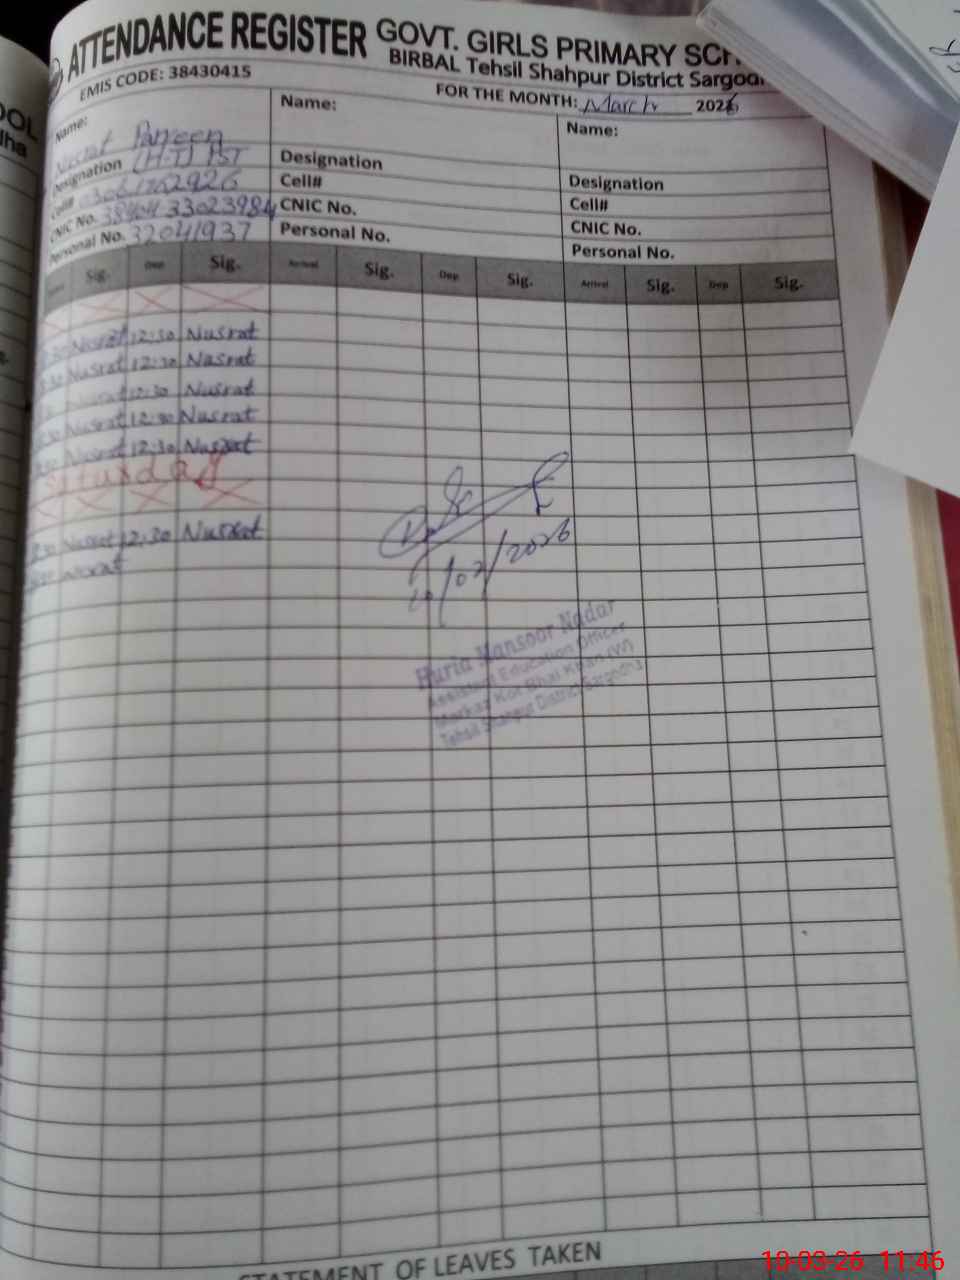 ATTENDANCE REGISTER GOVT. GIRLS PRIMARY SCH
BIRBAL Tehsil Shahpur District Sargod
EMIS CODE: 38430415
FOR THE MONTH: March 2026
Name: Nusrat Parveen
Designation (H.T) PST
Cell#
CNIC No.
Personal No. 32041937
Name:
Designation
Cell#
CNIC No.
Personal No.
Name:
Designation
Cell#
CNIC No.
Personal No.
Sig. Dep Sig. Arrival Sig. Dep Sig. Arrival Sig. Dep Sig.
Nusrat 12:30 Nusrat
Nusrat 12:30 Nusrat
Nusrat 12:30 Nusrat
Nusrat 12:30 Nusrat
Nusrat 12:30 Nusrat
Nusrat 12:30 Nusrat
Nusrat
10/02/2026
Huria Mansoor Nadar
Assistant Education Officer
Markaz Kot Bhai Khan (W)
Tehsil Shahpur District Sargodha
STATEMENT OF LEAVES TAKEN
OOL
dha
10-03-26 11:46